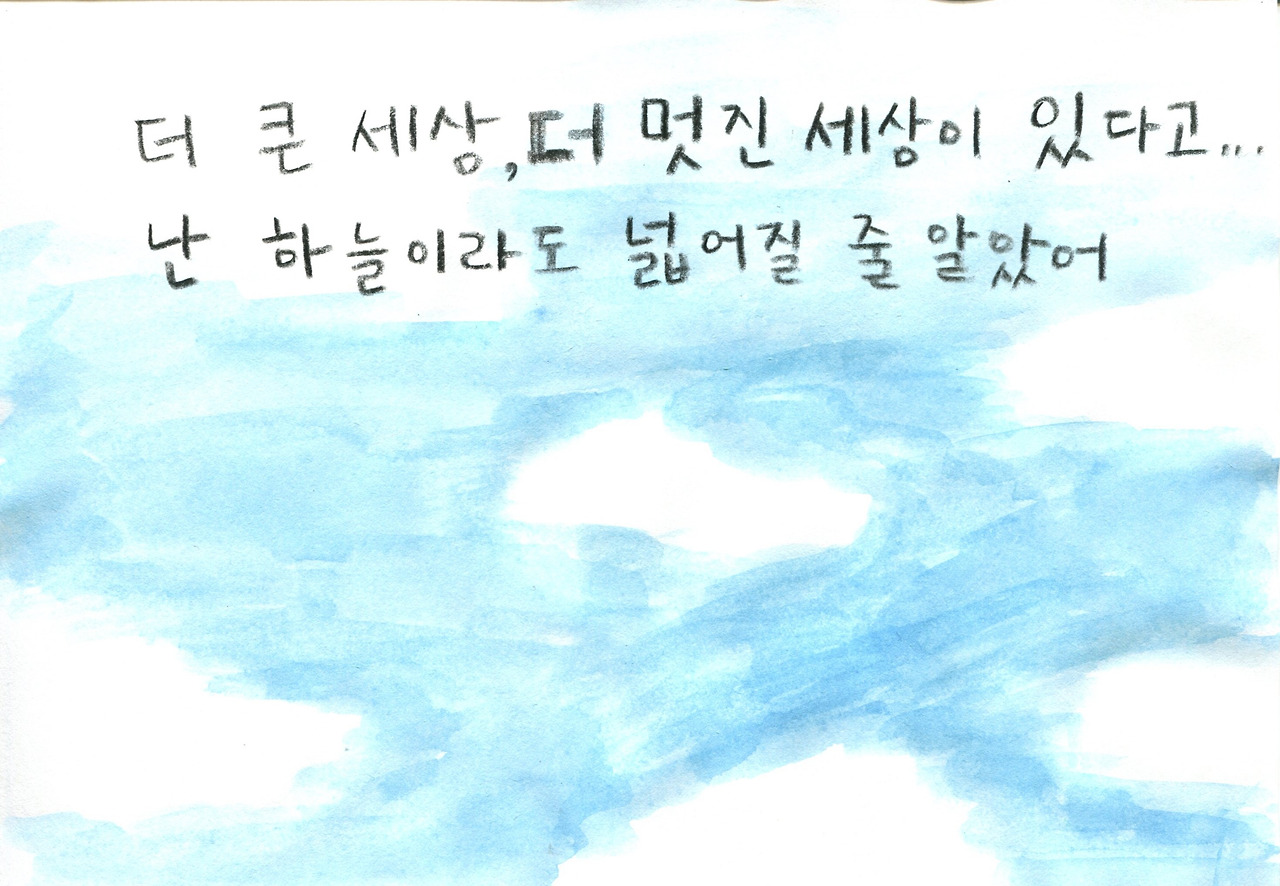 더 큰 세상, 더 멋진 세상이 있다고...
난 하늘이라도 넓어질 줄 알았어